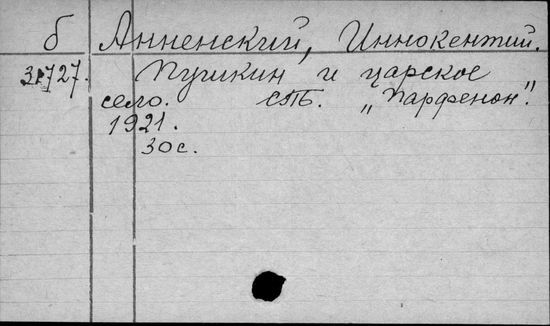 б Анненский, Иннокентий.
31727. Пушкин и царское
село. СПБ. „Парфенон".
1921.
30 с.